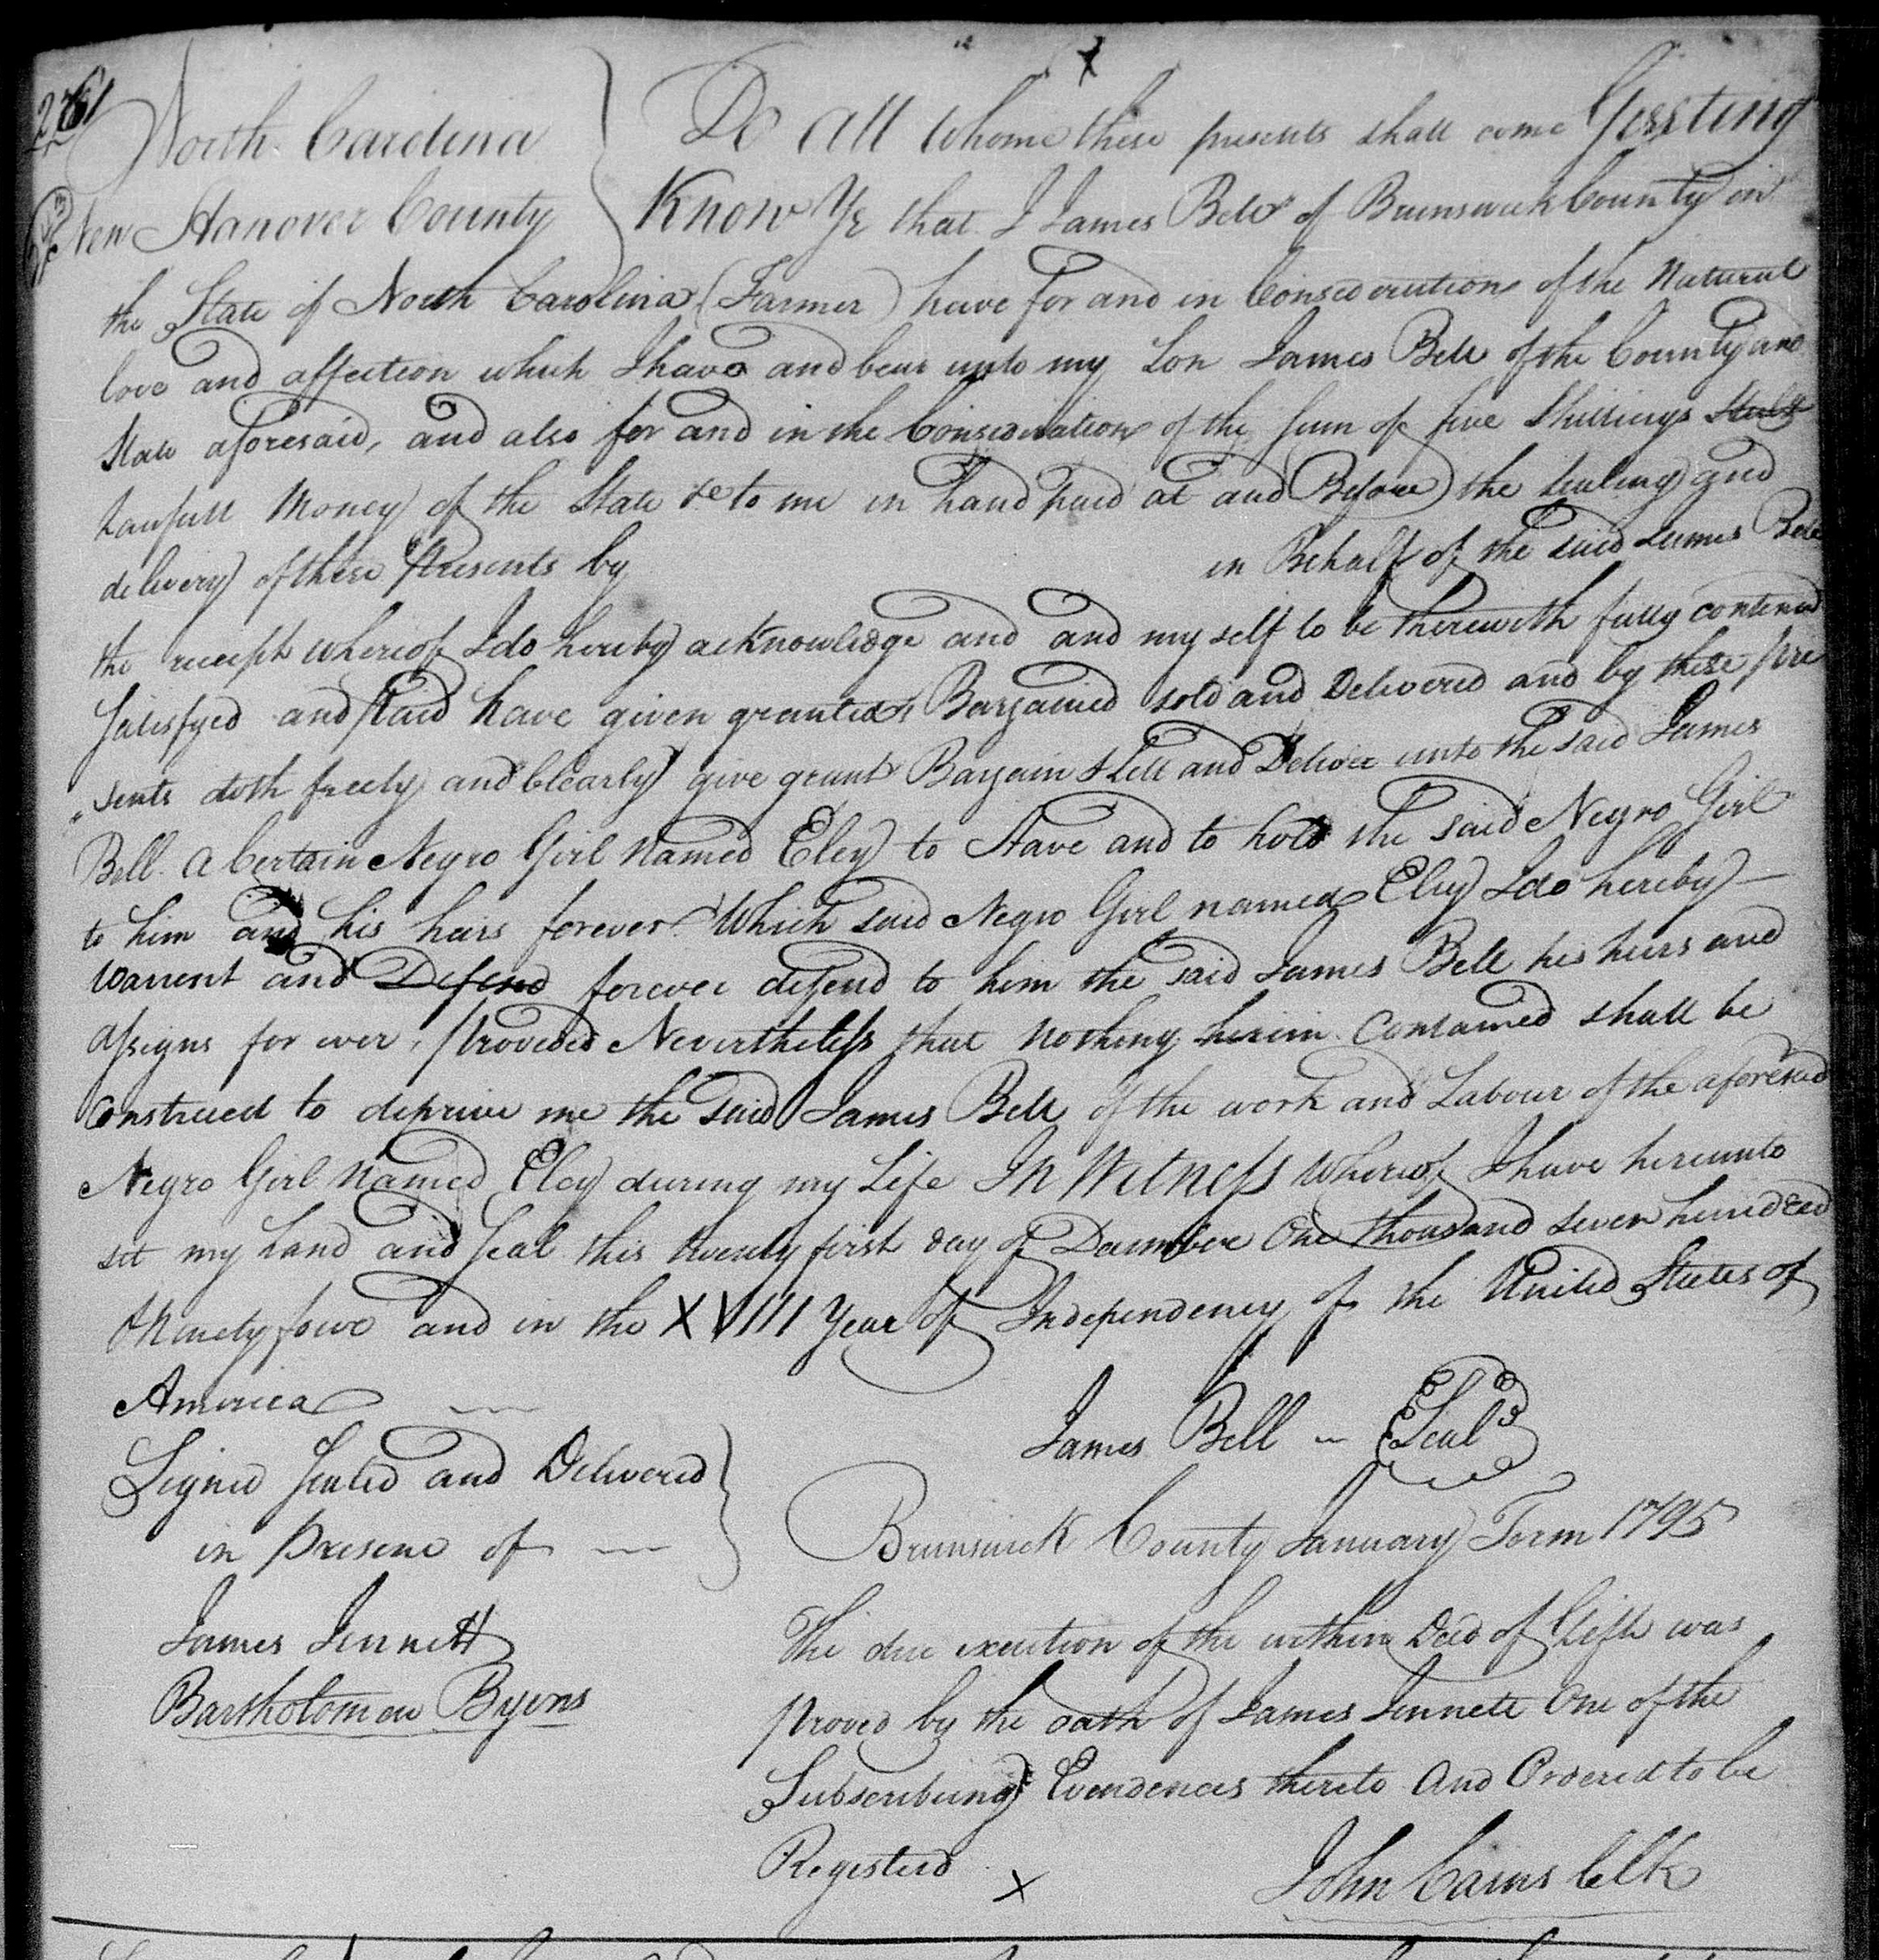 North Carolina } To All whome these presents shall come Greeting
New Hanover County } Know Ye that I James Bell of Brunswick County in
the State of North Carolina (Farmer) have for and in Consideration of the Natural
love and affection which I have and bear unto my Son James Bell of the County and
State aforesaid, and also for and in the Consideration of the sum of five Shillings
Lawfull Money of the State &c to me in hand paid at and Before the sealing and
delivery of these Presents by in Behalf of the said James Bell
the receipt whereof I do hereby acknowledge and and my self to be therewith fully contented
Satisfyed and paid have given granted Bargained sold and Delivered and by these pre
"sents doth freely and Clearly give grant Bargain Sell and Deliver unto the said James
Bell. a Certain Negro Girl Named Eley to Have and to hold the said Negro Girl
to him and his hairs forever Which said Negro Girl named Eley I do hereby
Warrent and Defend forever defend to him the said James Bell his heirs and
Assigns for ever, Provided Nevertheless that Nothing herein Contained shall be
Construed to deprive me the said James Bell of the work and Labour of the aforesaid
Negro Girl Named Eley during my Life In Witness Whereof I have hereunto
set my hand and Seal this twenty first day of December One thousand seven hundred
& Ninety four and in the XVIII Year of Independency of the United States of
America
James Bell ~ Seal
Signed Sealed and Delivered }
in Presence of
James Jennett
Bartholomew Byons
Brunswick County January Term 1795
The due execution of the within Deed of Gift was
proved by the oath of James Jennett One of the
Subscribing Evendences thereto And Ordered to be
Registerd x
John Cains Clk